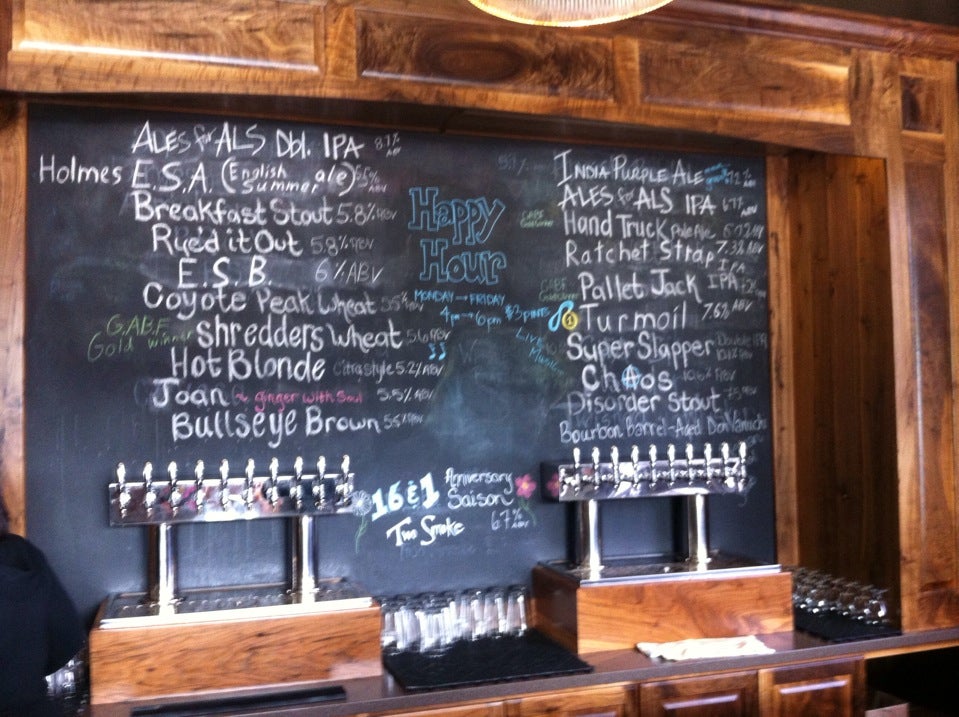 Ales for ALS Dbl. IPA 8.7% ABV
Holmes E.S.A. (English Summer ale) 5.5% ABV
Breakfast Stout 5.8% ABV
Rye'd it Out 5.8% ABV
E.S.B. 6% ABV
Coyote Peak Wheat
G.A.B.F. Gold winner
Shredders Wheat 5.6% ABV
Hot Blonde Citra style 5.2% ABV
Joan ginger with Soul 5.5% ABV
Bullseye Brown
Happy
Hour
Monday → Friday
4pm → 6pm $3 pints
Live Music
16 & 1 Anniversary Saison
Two Smoke 6.7% ABV
India Purple Ale 7.2% ABV
Ales for ALS IPA 6.7% ABV
Hand Truck Pale Ale
Ratchet Strap IPA 7.3% ABV
Pallet Jack IPA
Turmoil 7.6% ABV
Super Slapper Double IPA
Chaos
Disorder Stout
Bourbon Barrel-Aged